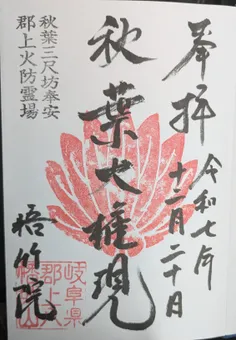 奉拝
令和七年
十二月二十日
秋葉大権現
秋葉三尺坊奉安
郡上火防霊場
悟竹院
岐阜県
郡上
八幡山